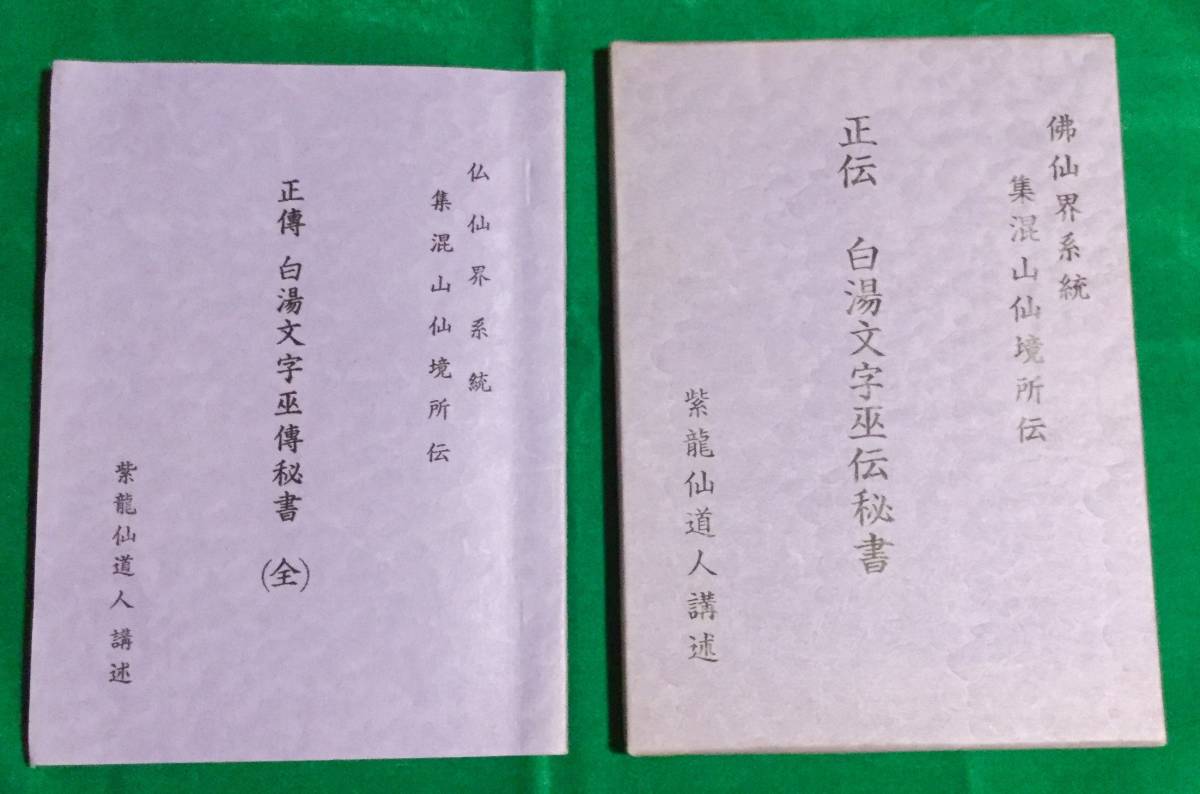 仏仙界系統
集混山仙境所伝
正傳 白湯文字巫傳秘書 (全)
紫龍仙道人 講述
佛仙界系統
集混山仙境所伝
正伝 白湯文字巫伝秘書
紫龍仙道人講述